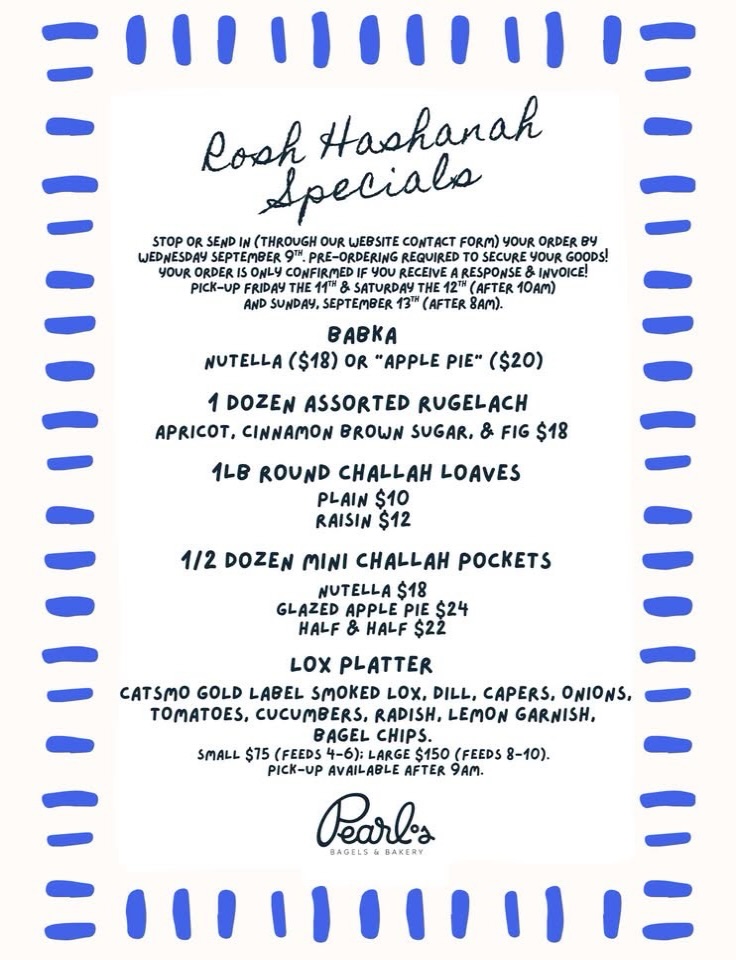 Rosh Hashanah
Specials
STOP OR SEND IN (THROUGH OUR WEBSITE CONTACT FORM) YOUR ORDER BY
WEDNESDAY SEPTEMBER 9TH. PRE-ORDERING REQUIRED TO SECURE YOUR GOODS!
YOUR ORDER IS ONLY CONFIRMED IF YOU RECEIVE A RESPONSE & INVOICE!
PICK-UP FRIDAY THE 11TH & SATURDAY THE 12TH (AFTER 10AM)
AND SUNDAY, SEPTEMBER 13TH (AFTER 8AM).
BABKA
NUTELLA ($18) OR "APPLE PIE" ($20)
1 DOZEN ASSORTED RUGELACH
APRICOT, CINNAMON BROWN SUGAR, & FIG $18
1LB ROUND CHALLAH LOAVES
PLAIN $10
RAISIN $12
1/2 DOZEN MINI CHALLAH POCKETS
NUTELLA $18
GLAZED APPLE PIE $24
HALF & HALF $22
LOX PLATTER
CATSMO GOLD LABEL SMOKED LOX, DILL, CAPERS, ONIONS,
TOMATOES, CUCUMBERS, RADISH, LEMON GARNISH,
BAGEL CHIPS.
SMALL $75 (FEEDS 4-6); LARGE $150 (FEEDS 8-10).
PICK-UP AVAILABLE AFTER 9AM.
Pearl's
BAGELS & BAKERY